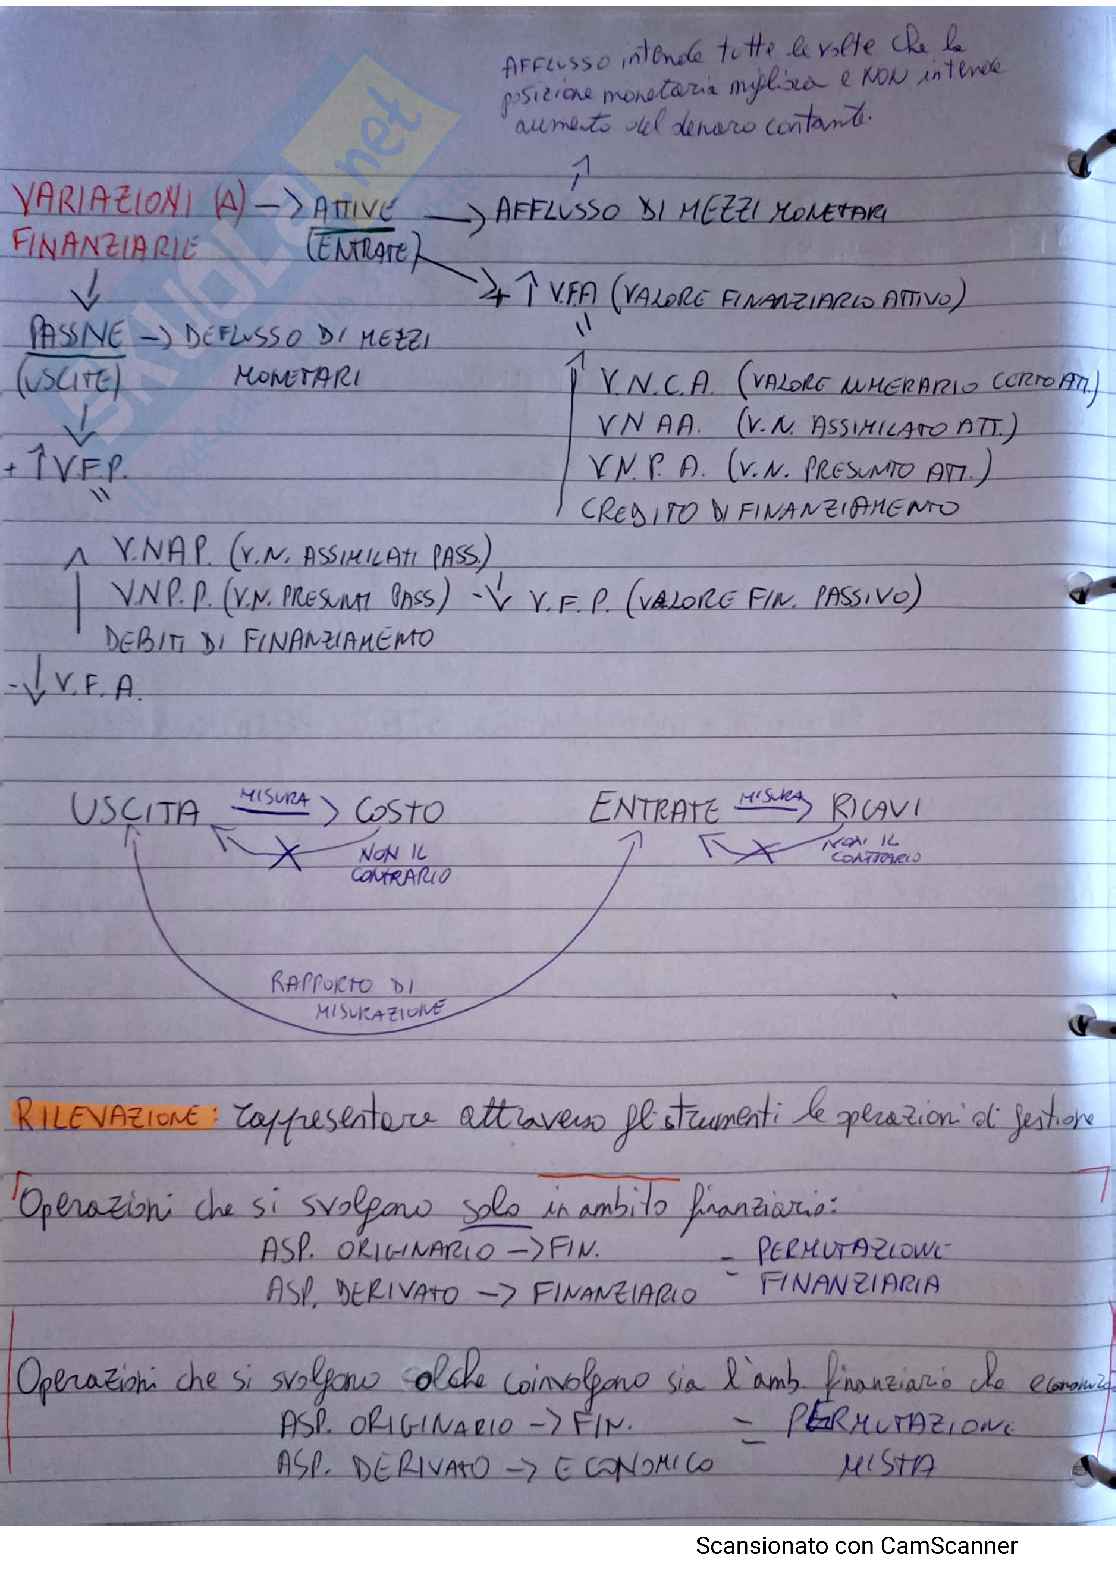 AFFLUSSO intende tutte le volte che la
posizione monetaria migliora e NON intende
aumento del denaro contante.
VARIAZIONI (A) -> ATTIVE -> AFFLUSSO DI MEZZI MONETARI
FINANZIARIE (ENTRATE)
+ ↑ V.F.A (VALORE FINANZIARIO ATTIVO)
PASSIVE -> DEFLUSSO DI MEZZI
(USCITE) MONETARI
V.N.C.A. (VALORE NUMERARIO CERTO ATT.)
VNAA. (V.N. ASSIMILATO ATT.)
+ ↑ V.F.P.
VNP.A. (V.N. PRESUNTO ATT.)
CREDITO DI FINANZIAMENTO
V.NAP. (V.N. ASSIMILATI PASS.)
VNP.P. (V.N. PRESUNTI PASS) - ↓ V.F.P. (VALORE FIN. PASSIVO)
DEBITI DI FINANZIAMENTO
- ↓ V.F.A.
USCITA MISURA -> COSTO ENTRATE MISURA -> RICAVI
NON IL NON IL
CONTRARIO CONTRARIO
RAPPORTO DI
MISURAZIONE
RILEVAZIONE: rappresentare attraverso gli strumenti le operazioni di gestione
Operazioni che si svolgono solo in ambito finanziario:
ASP. ORIGINARIO -> FIN. = PERMUTAZIONE
ASP. DERIVATO -> FINANZIARIO FINANZIARIA
Operazioni che si svolgono che coinvolgono sia l'amb. finanziario che
ASP. ORIGINARIO -> FIN. = PERMUTAZIONE
ASP. DERIVATO -> ECONOMICO MISTA
SKUOLA.net
Scansionato con CamScanner